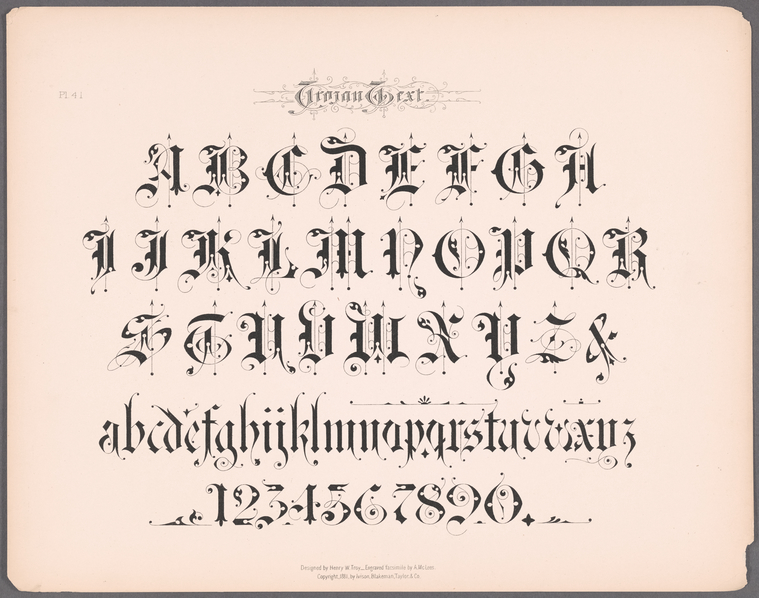 Pl. 4.
Trojan Text.
A B C D E F G H
I J K L M N O P Q R
S T U V W X Y Z &
a b c d e f g h i j k l m n o p q r s t u v w x y z
1 2 3 4 5 6 7 8 9 0.
Designed by Henry W. Troy. Engraved facsimile by A. McLees.
Copyright, 1881, by Ivison, Blakeman, Taylor & Co.